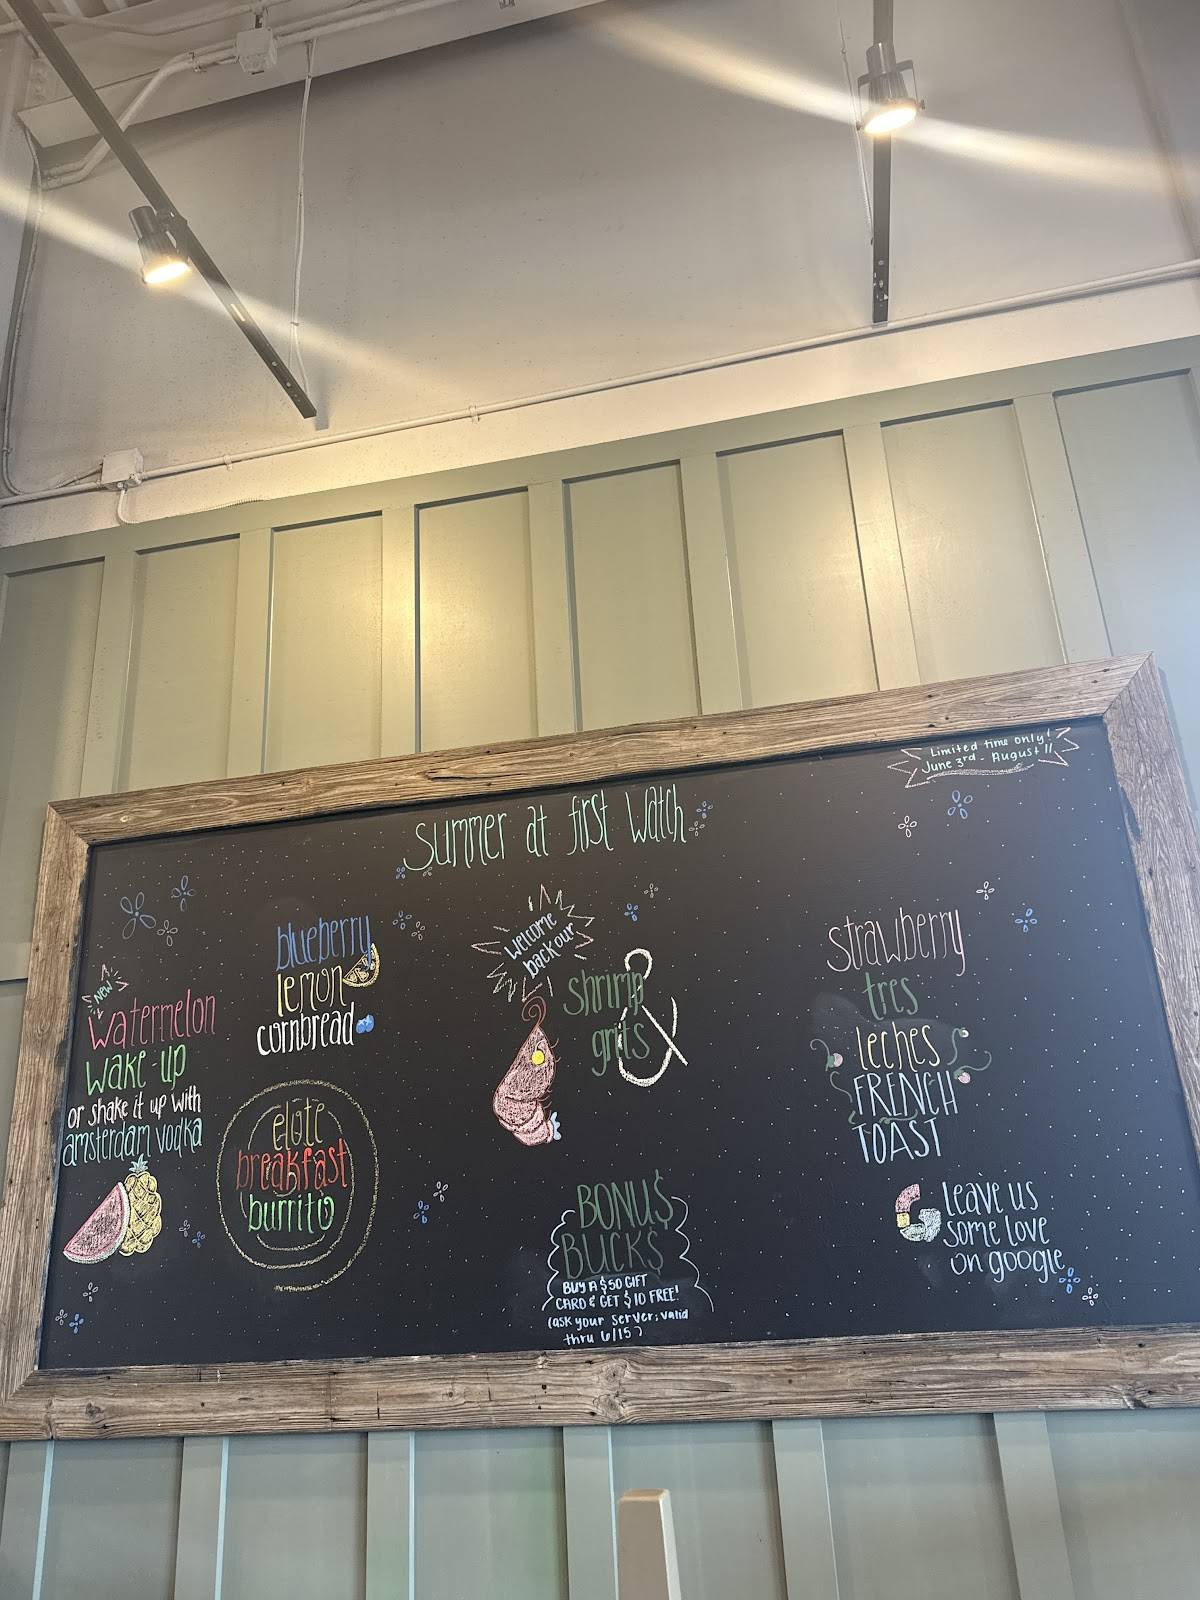 Limited time only!
June 3rd - August 11
Summer at first Watch
NEW
watermelon
wake-up
or shake it up with
amsterdam vodka
blueberry
lemon
cornbread
elote
breakfast
burrito
welcome
back our
shrimp
&
grits
strawberry
tres
leches
FRENCH
TOAST
BONU$
BUCK$
BUY A $50 GIFT
CARD & GET $10 FREE!
(ask your server; valid
thru 6/15)
G
leave us
some love
on google